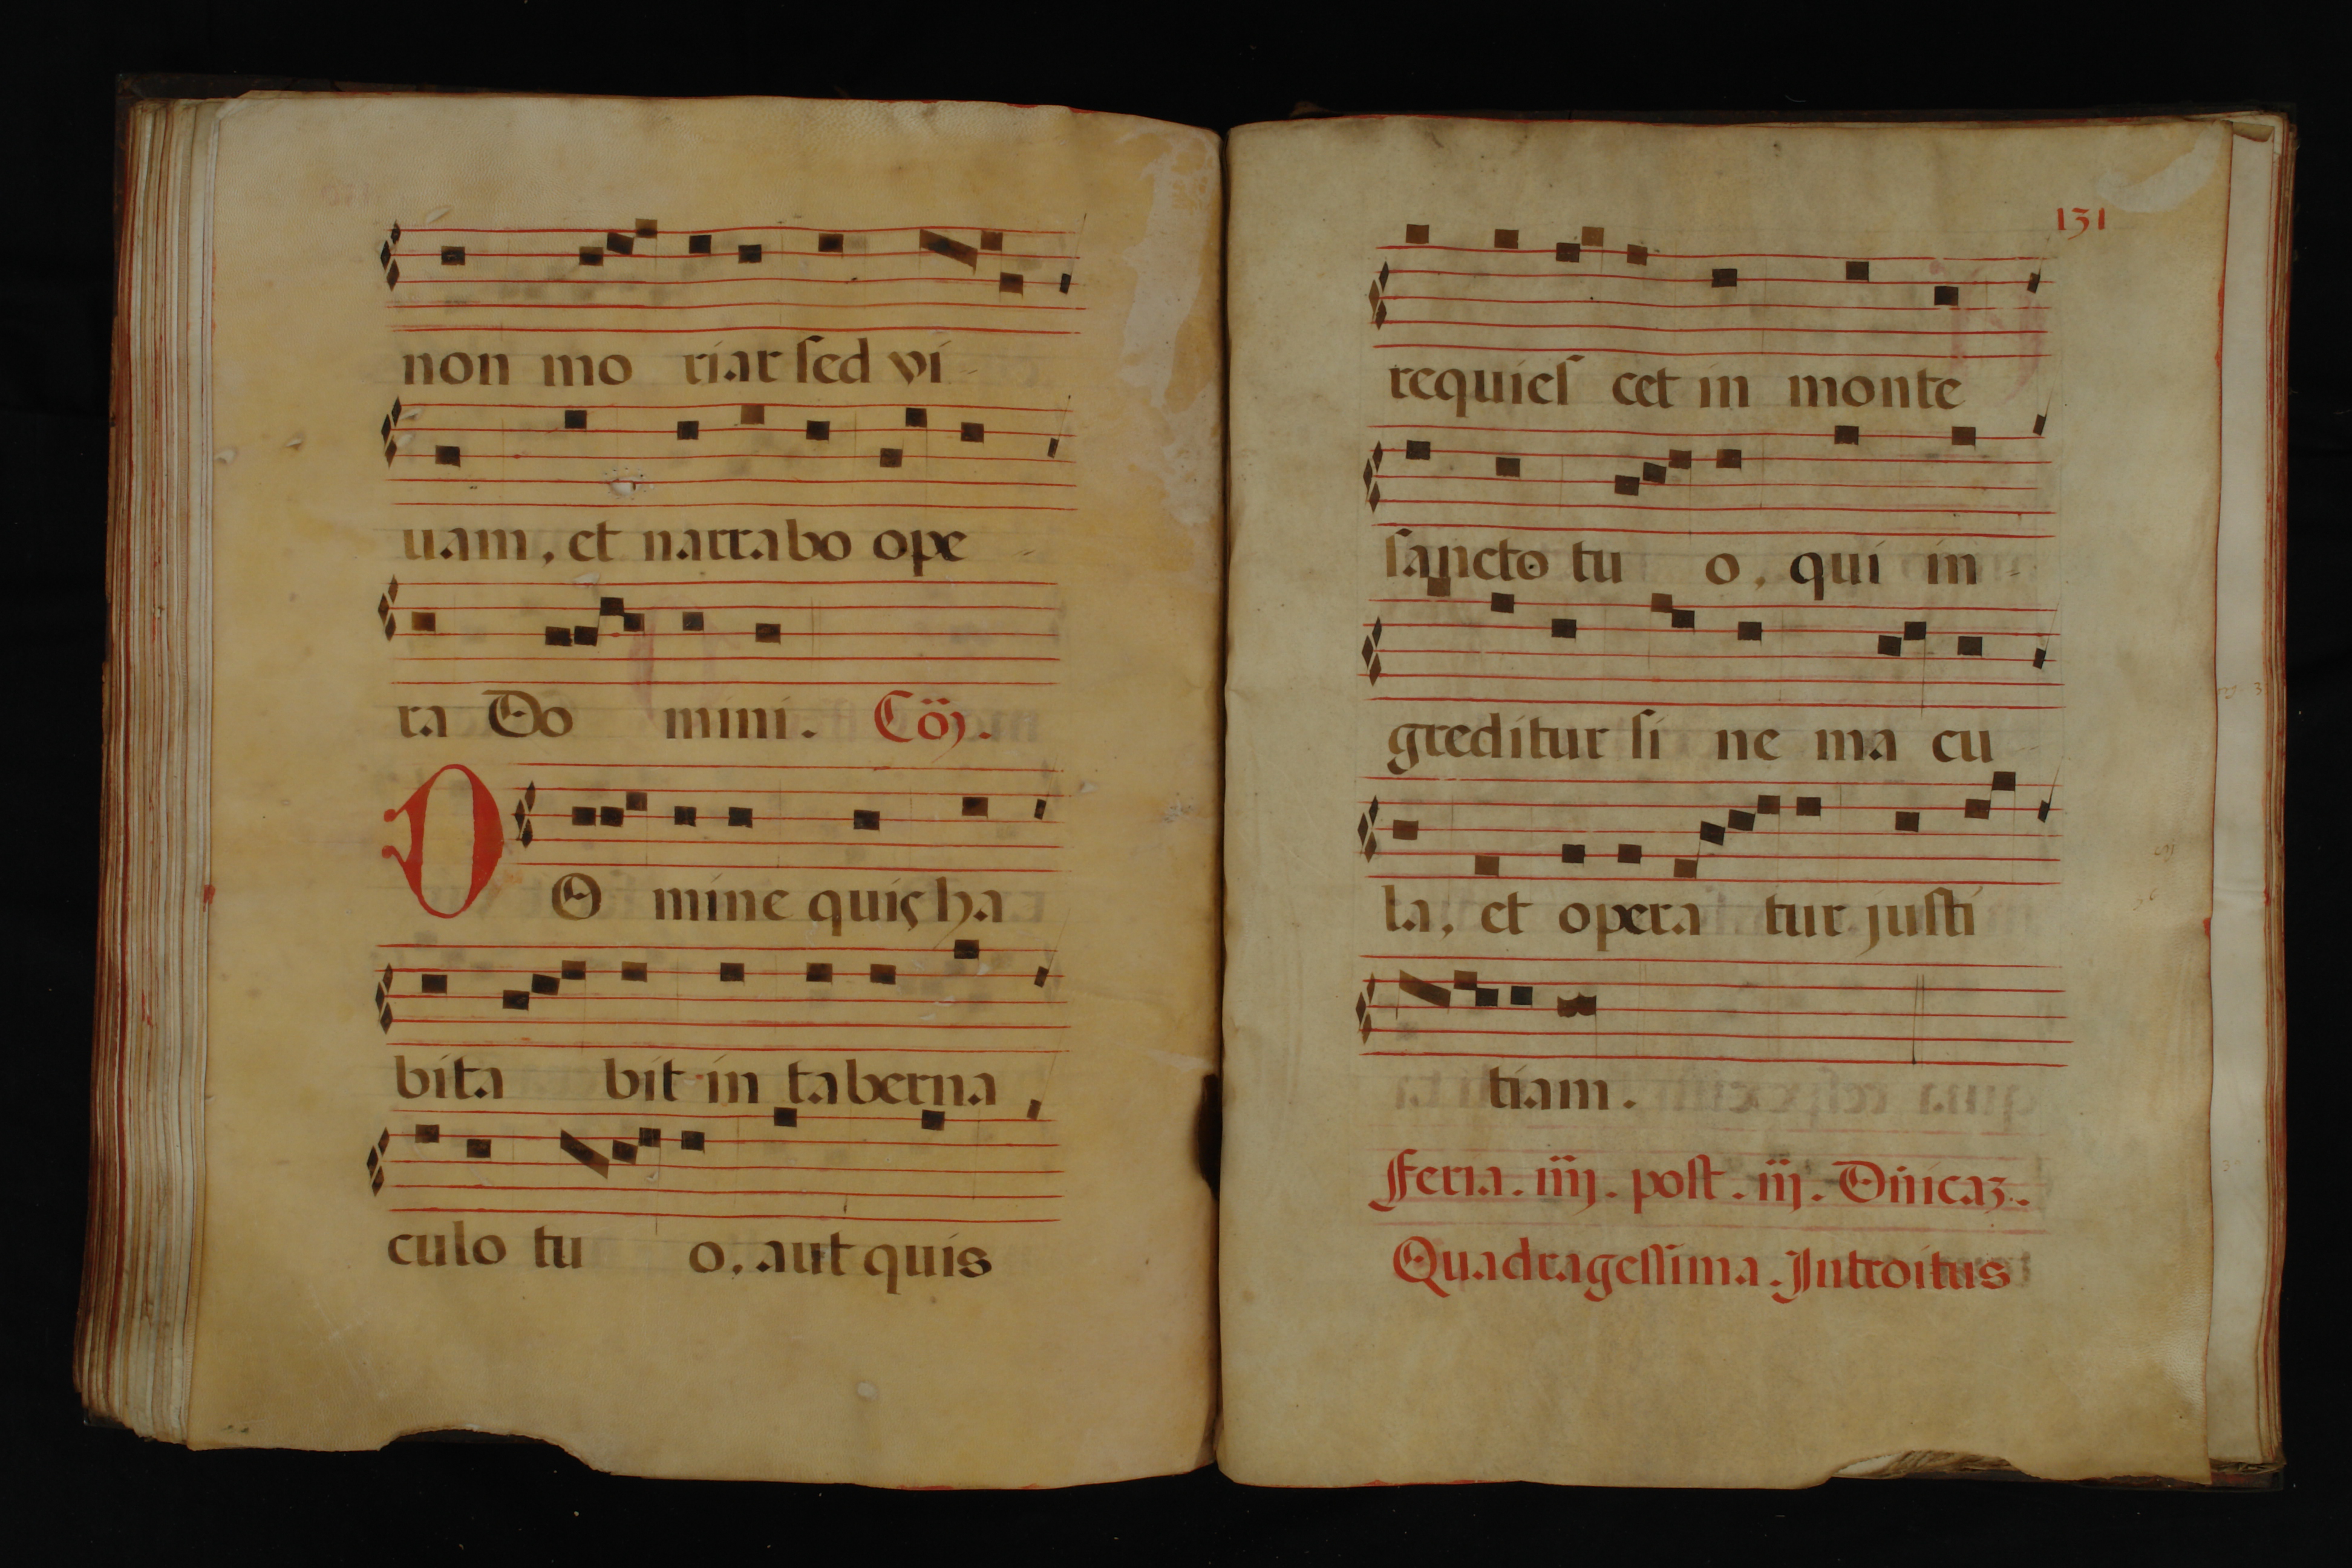 non mo riar sed vi -
uam, et narrabo ope -
ra Do mini. Cō.
DO mine quis ha
bita bit in taberna
culo tu o, aut quis
131
requieſ cet in monte
ſancto tu o, qui in -
greditur ſi ne ma cu -
la, et opera tur juſti
tiam.
Feria. iiij. poſt. iij. Dn̄icaʒ.
Quadrageſſima. Introitus